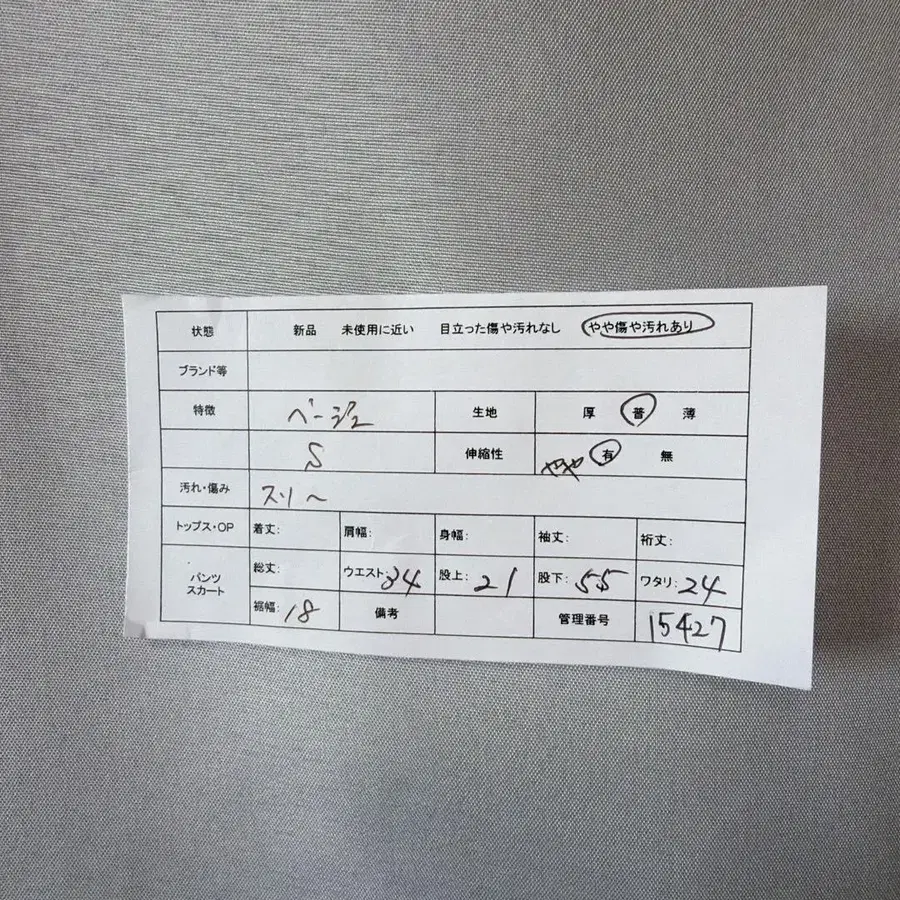 状態 新品 未使用に近い 目立った傷や汚れなし やや傷や汚れあり
ブランド等
特徴 ベージュ 生地 厚 普 薄
S 伸縮性 やや 有 無
汚れ・傷み スリ～
トップス・OP 着丈: 肩幅: 身幅: 袖丈: 裄丈:
パンツ スカート 総丈: ウエスト:34 股上:21 股下:55 ワタリ:24
裾幅:18 備考 管理番号 15427